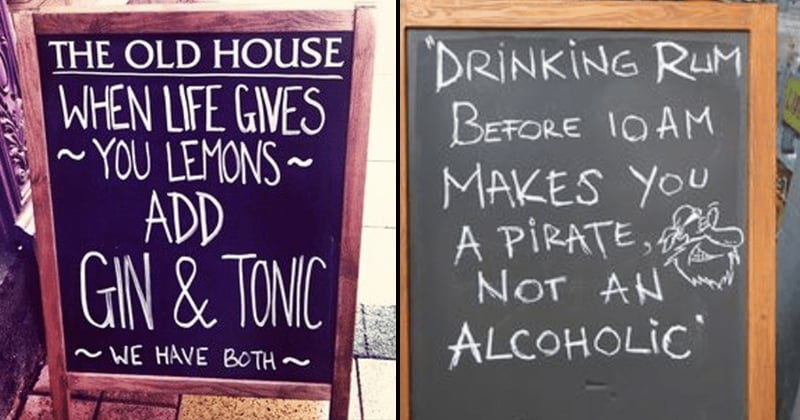 THE OLD HOUSE
WHEN LIFE GIVES
~ YOU LEMONS ~
ADD
GIN & TONIC
~ WE HAVE BOTH ~
"DRINKING RUM
BEFORE 10AM
MAKES YOU
A PIRATE,
NOT AN
ALCOHOLIC"